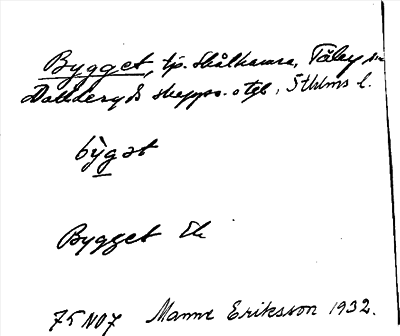 Bygget, tp. Skålhamra, Täby sn
Danderyds skeppsl. o tgl, Sthlms l.
bỳgət
Bygget Ek
75 NO7 Manne Eriksson 1932.